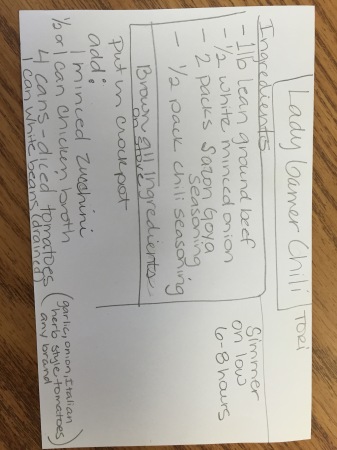 Lady Gamer Chili
TORI
Ingredients
- 1 lb lean ground beef
- 1/2 white minced onion
- 2 packs Sazon Goya
seasoning
- 1/2 pack chili seasoning
Brown all Ingredients
on stove
Simmer
on low
6-8 hours
Put in crockpot
add:
1 minced zucchini
1/2 or 1 can chicken broth
4 cans - diced tomatoes
(garlic, onion, Italian
herb style tomatoes
any brand)
1 can white beans (drained)